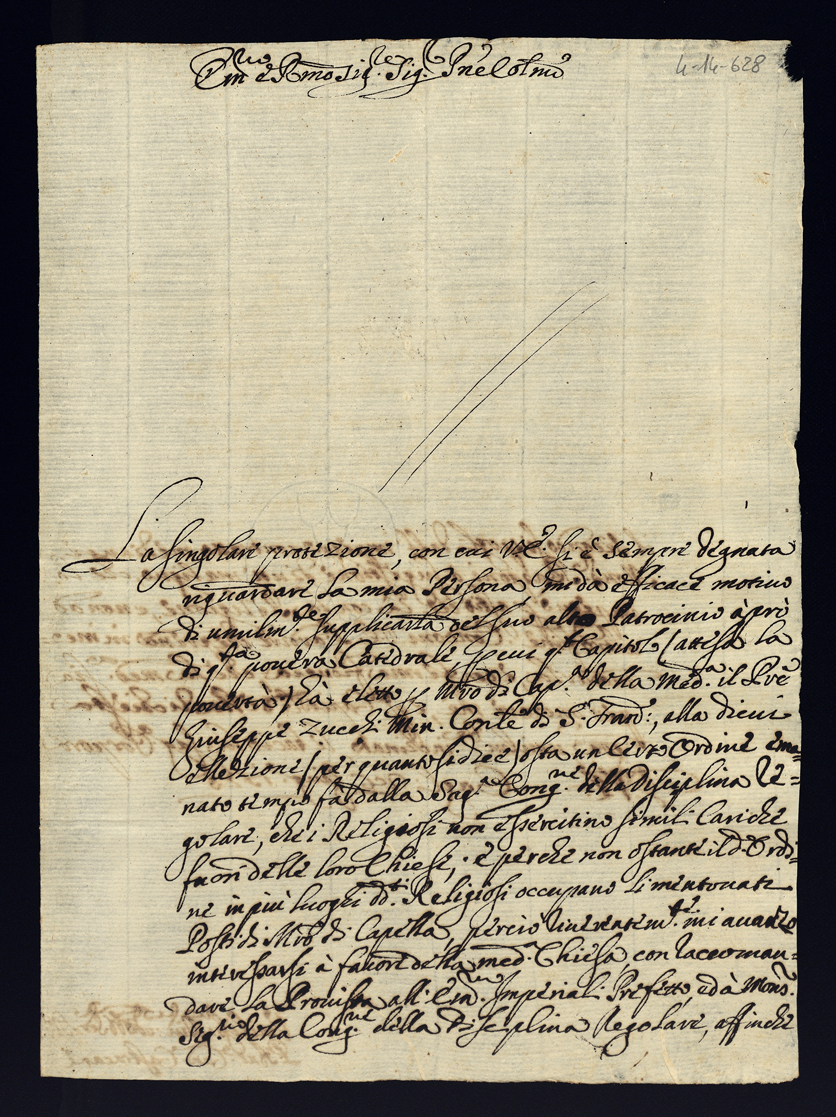 Em.mo e R.mo Sig.re Sig. P.rne Col.mo
4-14-628
La singolare protezione, con cui V.E. si è sempre degnata
riguardare la mia Persona, mi dà efficace motivo
di umilm.te supplicarla del suo alto Patrocinio à prò
di q.ta povera Catedrale, per cui q.to Capitolo (attesa la
povertà) hà eletto per M.ro di Cap.a della med.a il Pre
Giuseppe Zucchi Min. Con.le di S. Fran.o, alla di cui
ellezione (per quanto si dice) osta un certo Ordine ema=
nato tempo fà dalla Sag.a Cong.ne della Disciplina Re=
golare, che i Religiosi non essercitino simili Cariche
fuori delle loro Chiese; e perche non ostante il d.o Ordi=
ne in più luoghi d.ti Religiosi occupano li mentovati
Posti di M.ro di Capella, perciò riverentem.te mi avanzo
interessarsi à favore della med.a Chiesa con raccoman=
dare la Provista all'Em.mo Imperiali Prefetto, ed à Mons.r
Seg.rio della Cong.ne della Disciplina Regolare, affinche